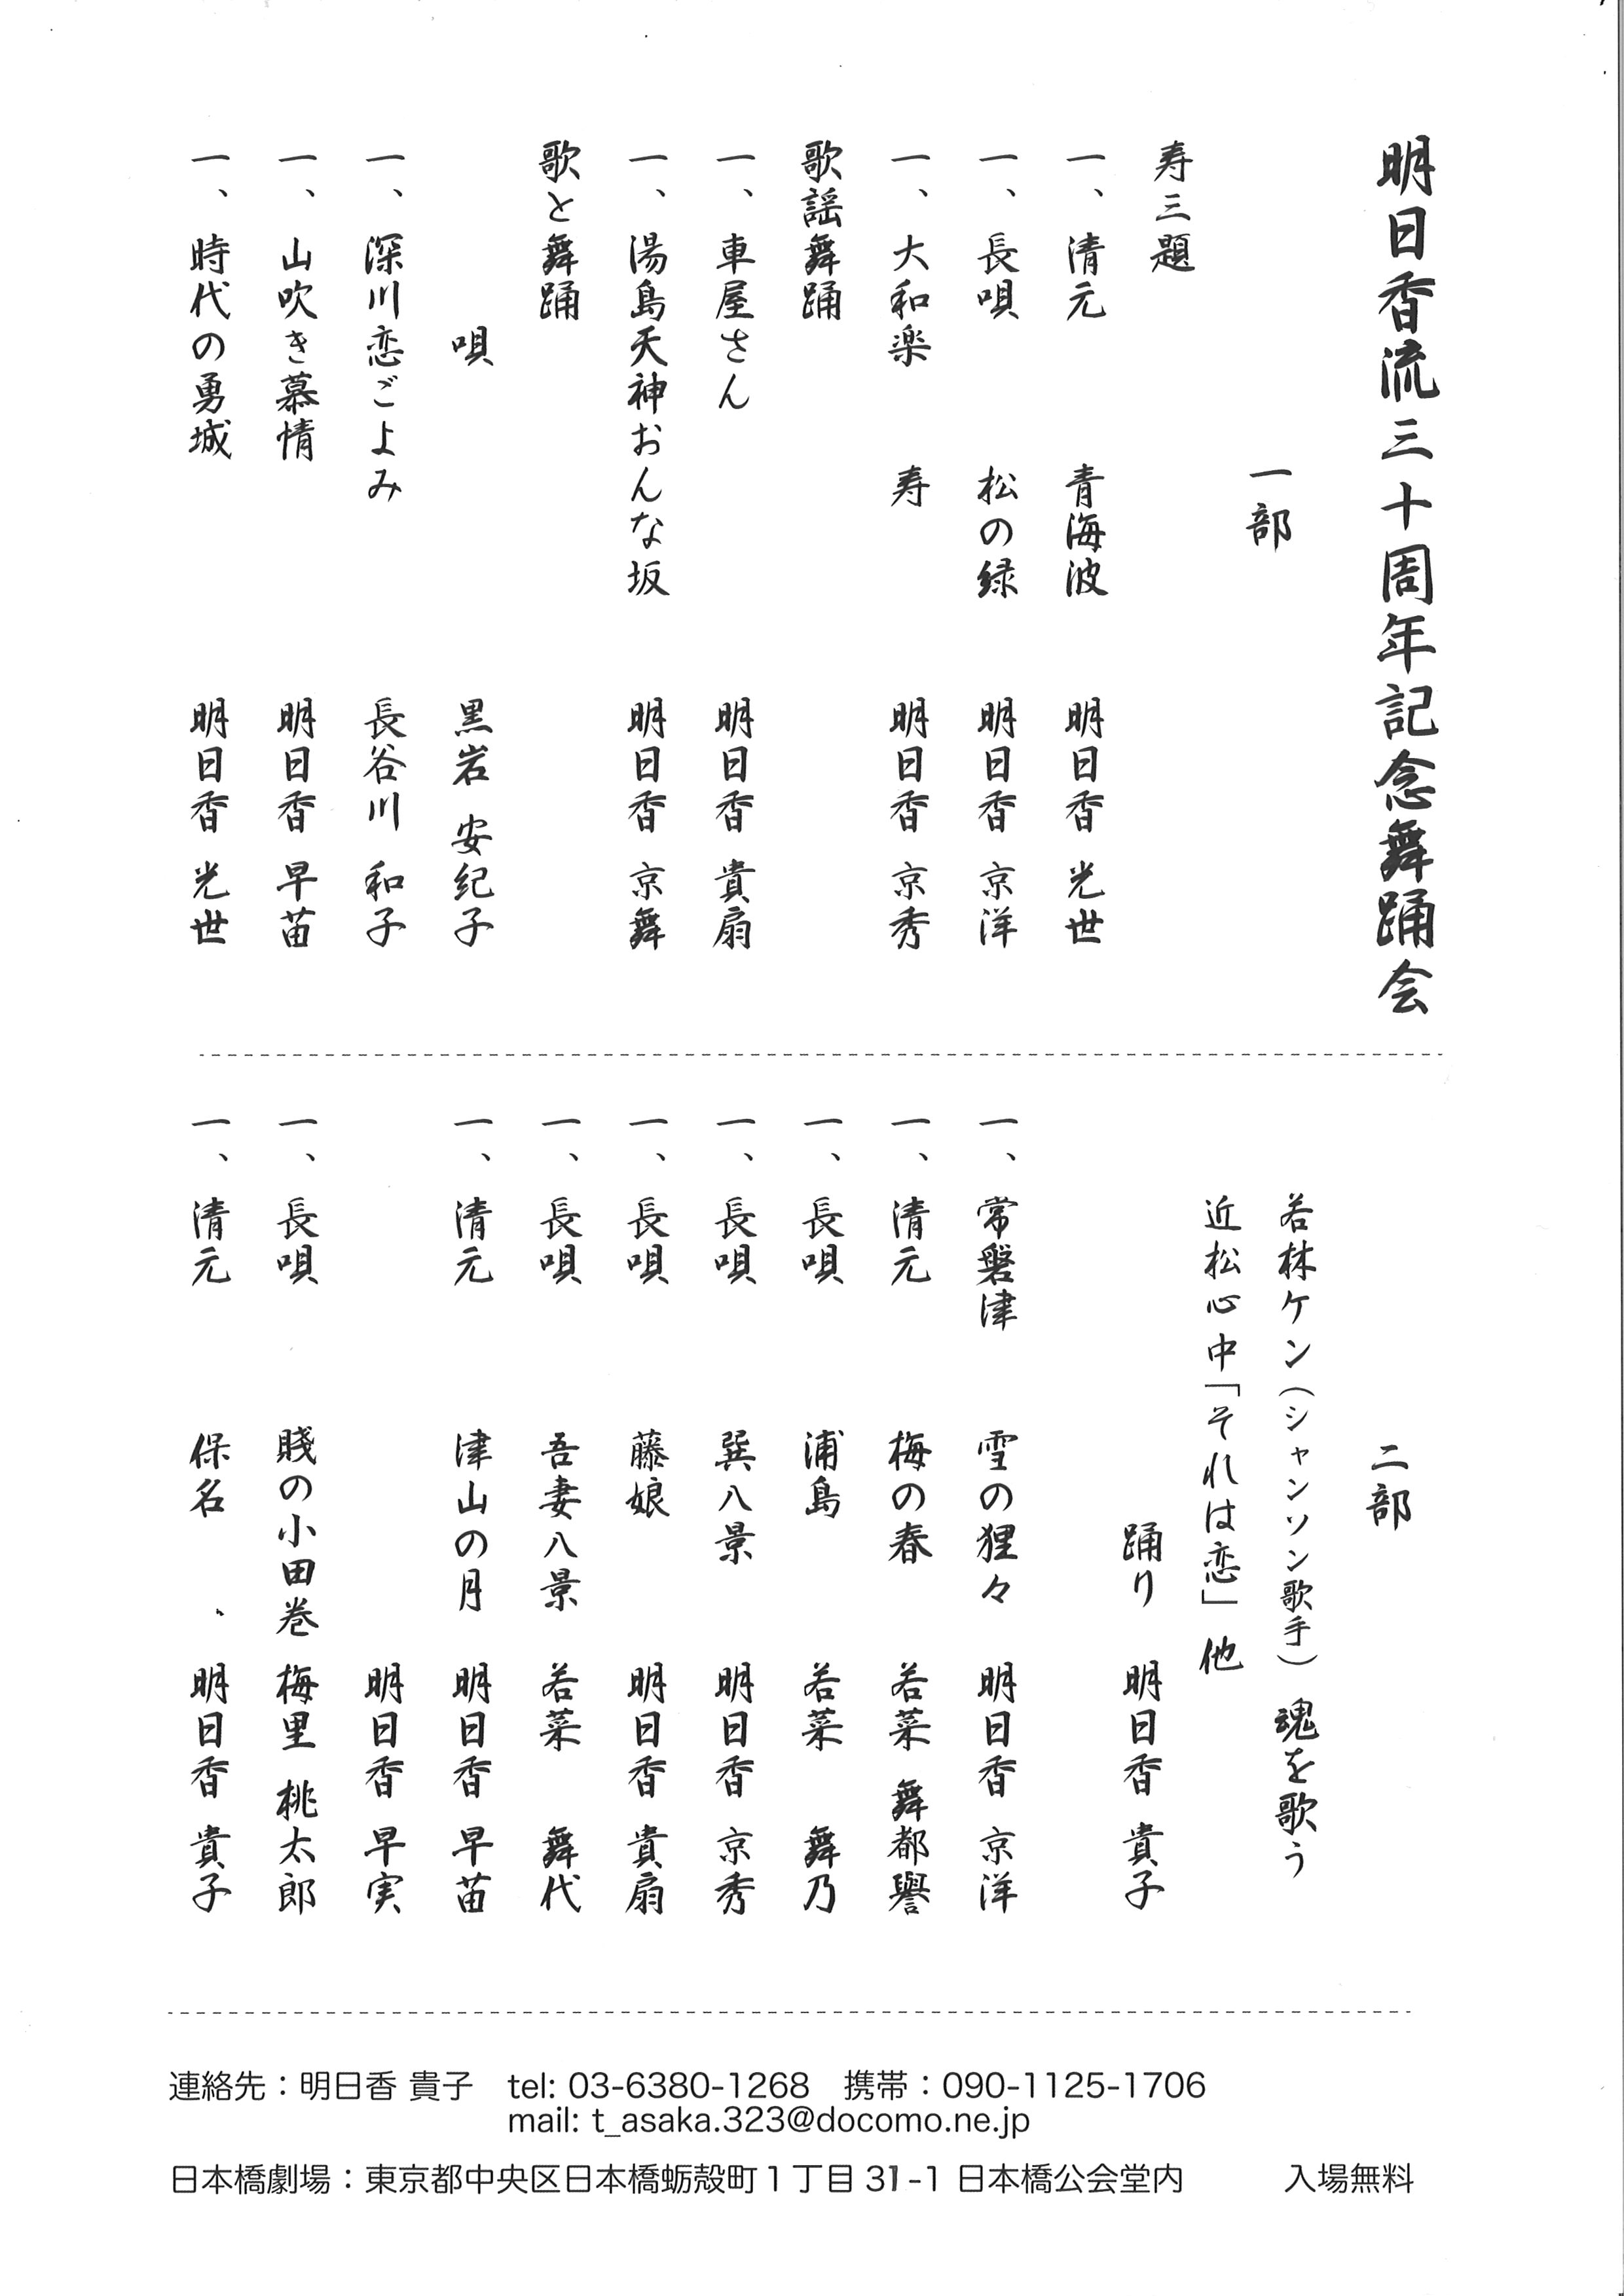 明日香流三十周年記念舞踊会
一部
寿三題
一、清元 青海波 明日香 光世
一、長唄 松の緑 明日香 京洋
一、大和楽 寿 明日香 京秀
歌謡舞踊
一、車屋さん 明日香 貴扇
一、湯島天神おんな坂 明日香 京舞
歌と舞踊
唄 黒岩 安紀子
一、深川恋ごよみ 長谷川 和子
一、山吹き慕情 明日香 早苗
一、時代の勇城 明日香 光世
二部
若林ケン(シャンソン歌手) 魂を歌う
近松心中「それは恋」他
踊り 明日香 貴子
一、常磐津 雪の狸々 明日香 京洋
一、清元 梅の春 若菜 舞都譽
一、長唄 浦島 若菜 舞乃
一、長唄 巽八景 明日香 京秀
一、長唄 藤娘 明日香 貴扇
一、長唄 吾妻八景 若菜 舞代
一、清元 津山の月 明日香 早苗
明日香 早実
一、長唄 賤の小田巻 梅里 桃太郎
一、清元 保名 明日香 貴子
連絡先：明日香 貴子 tel: 03-6380-1268 携帯：090-1125-1706
mail: t_asaka.323@docomo.ne.jp
日本橋劇場：東京都中央区日本橋蛎殻町1丁目31-1 日本橋公会堂内 入場無料